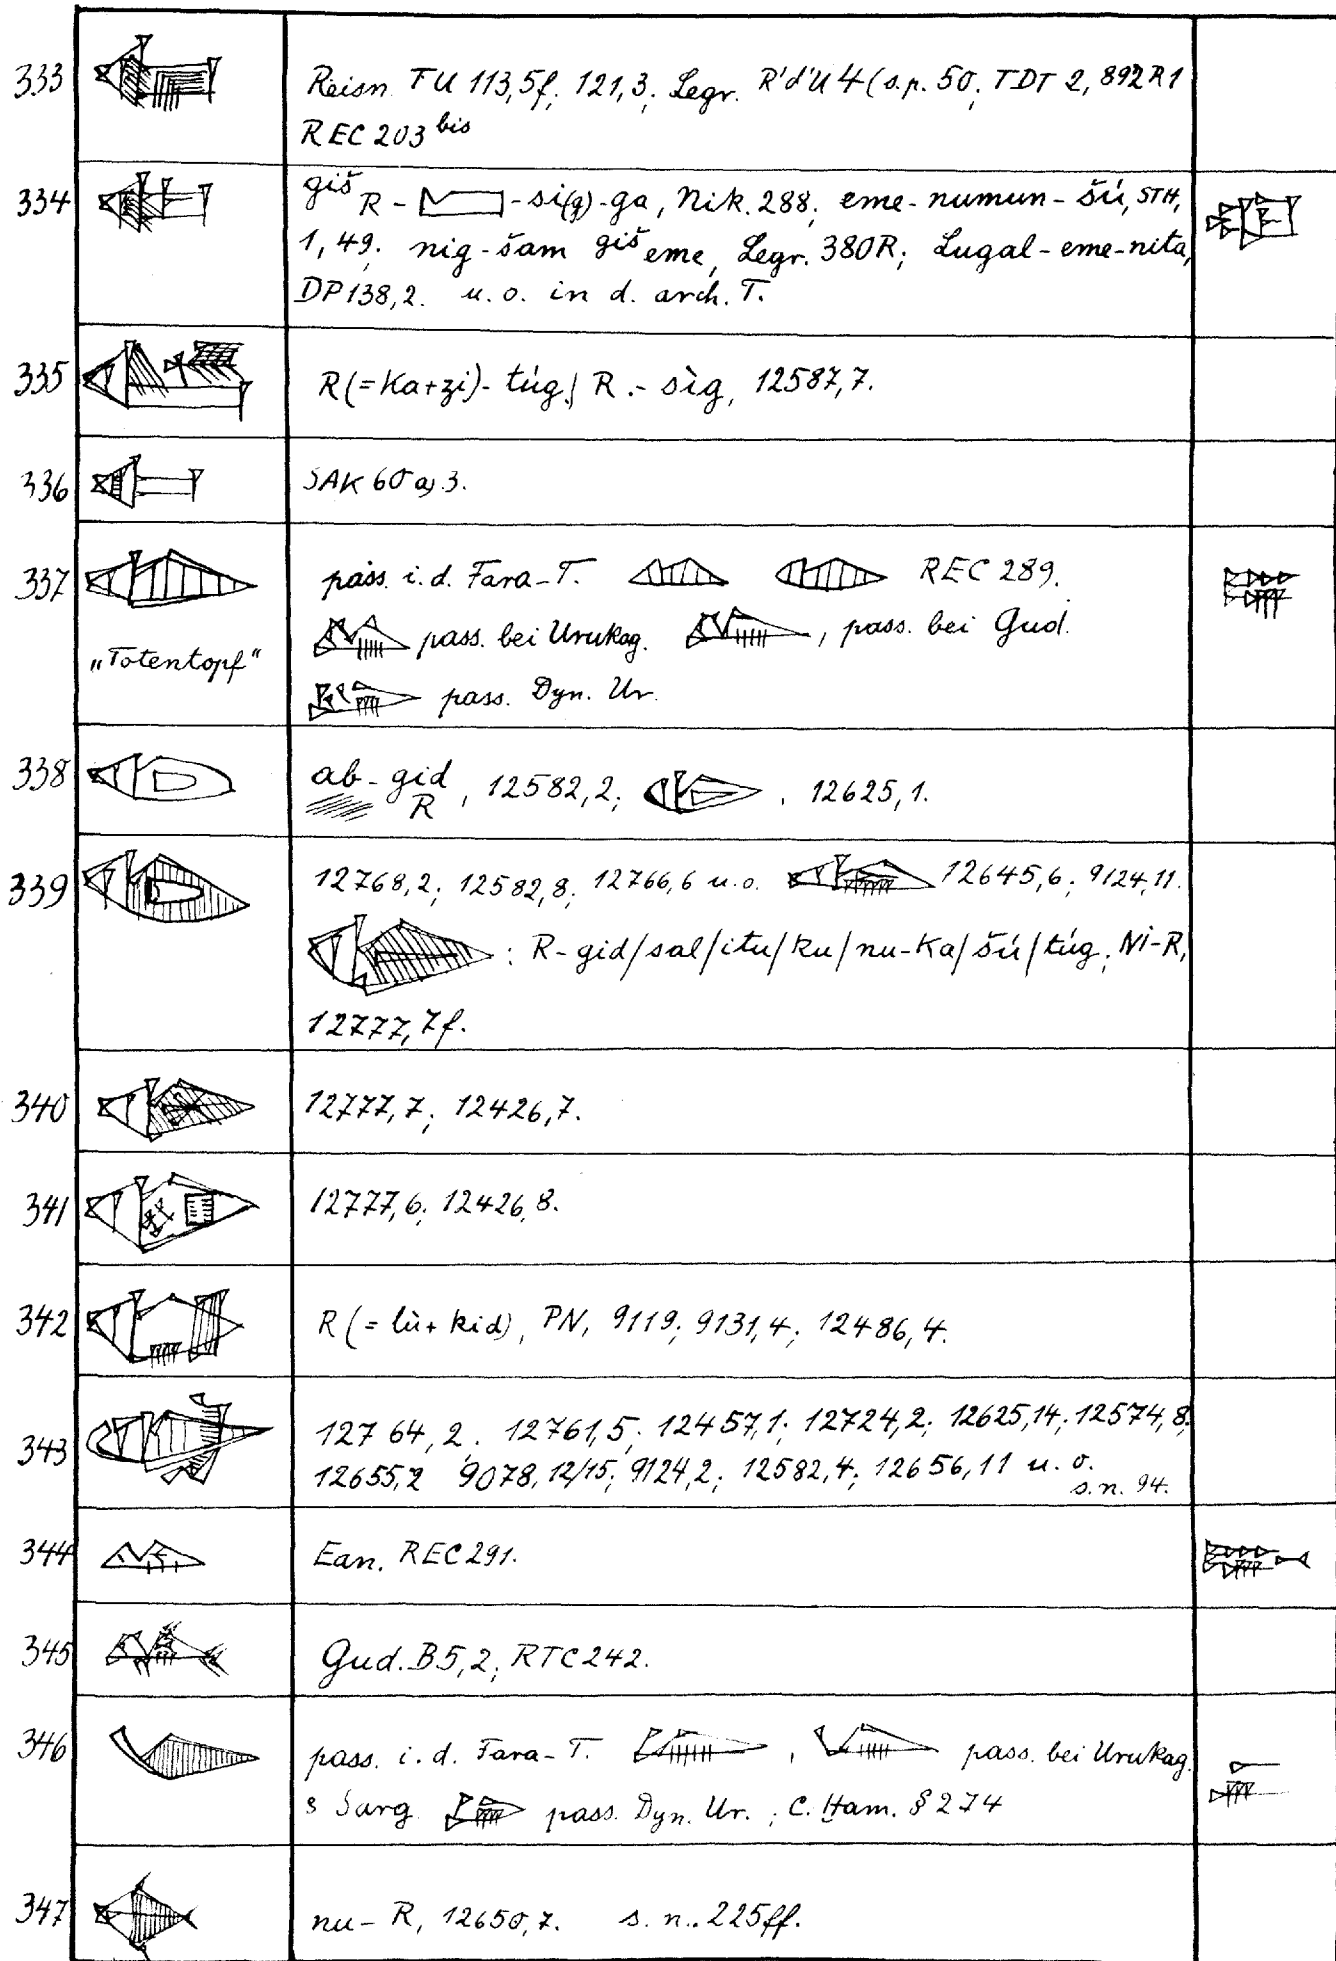 333 Reisn. TU 113,5f; 121,3; Legr. R'd'U 4 (s.p. 50; TDT 2, 892 R1
REC 203 bis
334 giš R - -si(g)-ga, Nik. 288; eme-numun-šú, STH,
1,49. nig-šam giš eme, Legr. 380R; Lugal-eme-nita,
DP 138,2. u. o. in d. arch. T.
335 R (=Ka+zi)-túg / R.-sìg, 12587,7.
336 SAK 60 a) 3.
337 pass. i. d. Fara-T. REC 289.
pass. bei Urukag. , pass. bei Gud.
"Totentopf"
pass. Dyn. Ur.
338 ab-gid
R , 12582,2; , 12625,1.
339 12768,2; 12582,8; 12766,6 u.o. 12645,6; 9124,11.
: R-gid/sal/itu/ku/nu-Ka/šú/túg; NI-R,
12777,7f.
340 12777,7; 12426,7.
341 12777,6; 12426,8.
342 R (= lù+kid), PN, 9119; 9131,4; 12486,4.
343 12764,2. 12761,5; 12457,1; 12724,2; 12625,14; 12574,8.
12655,2 9078,12/15; 9124,2; 12582,4; 12656,11 u. o.
s. n. 94.
344 Ean. REC 291.
345 Gud. B 5,2; RTC 242.
346 pass. i. d. Fara-T. , pass. bei Urukag.
s Sarg. pass. Dyn. Ur. ; C. Ham. § 274
347 nu-R, 12650,7. s. n. 225ff.